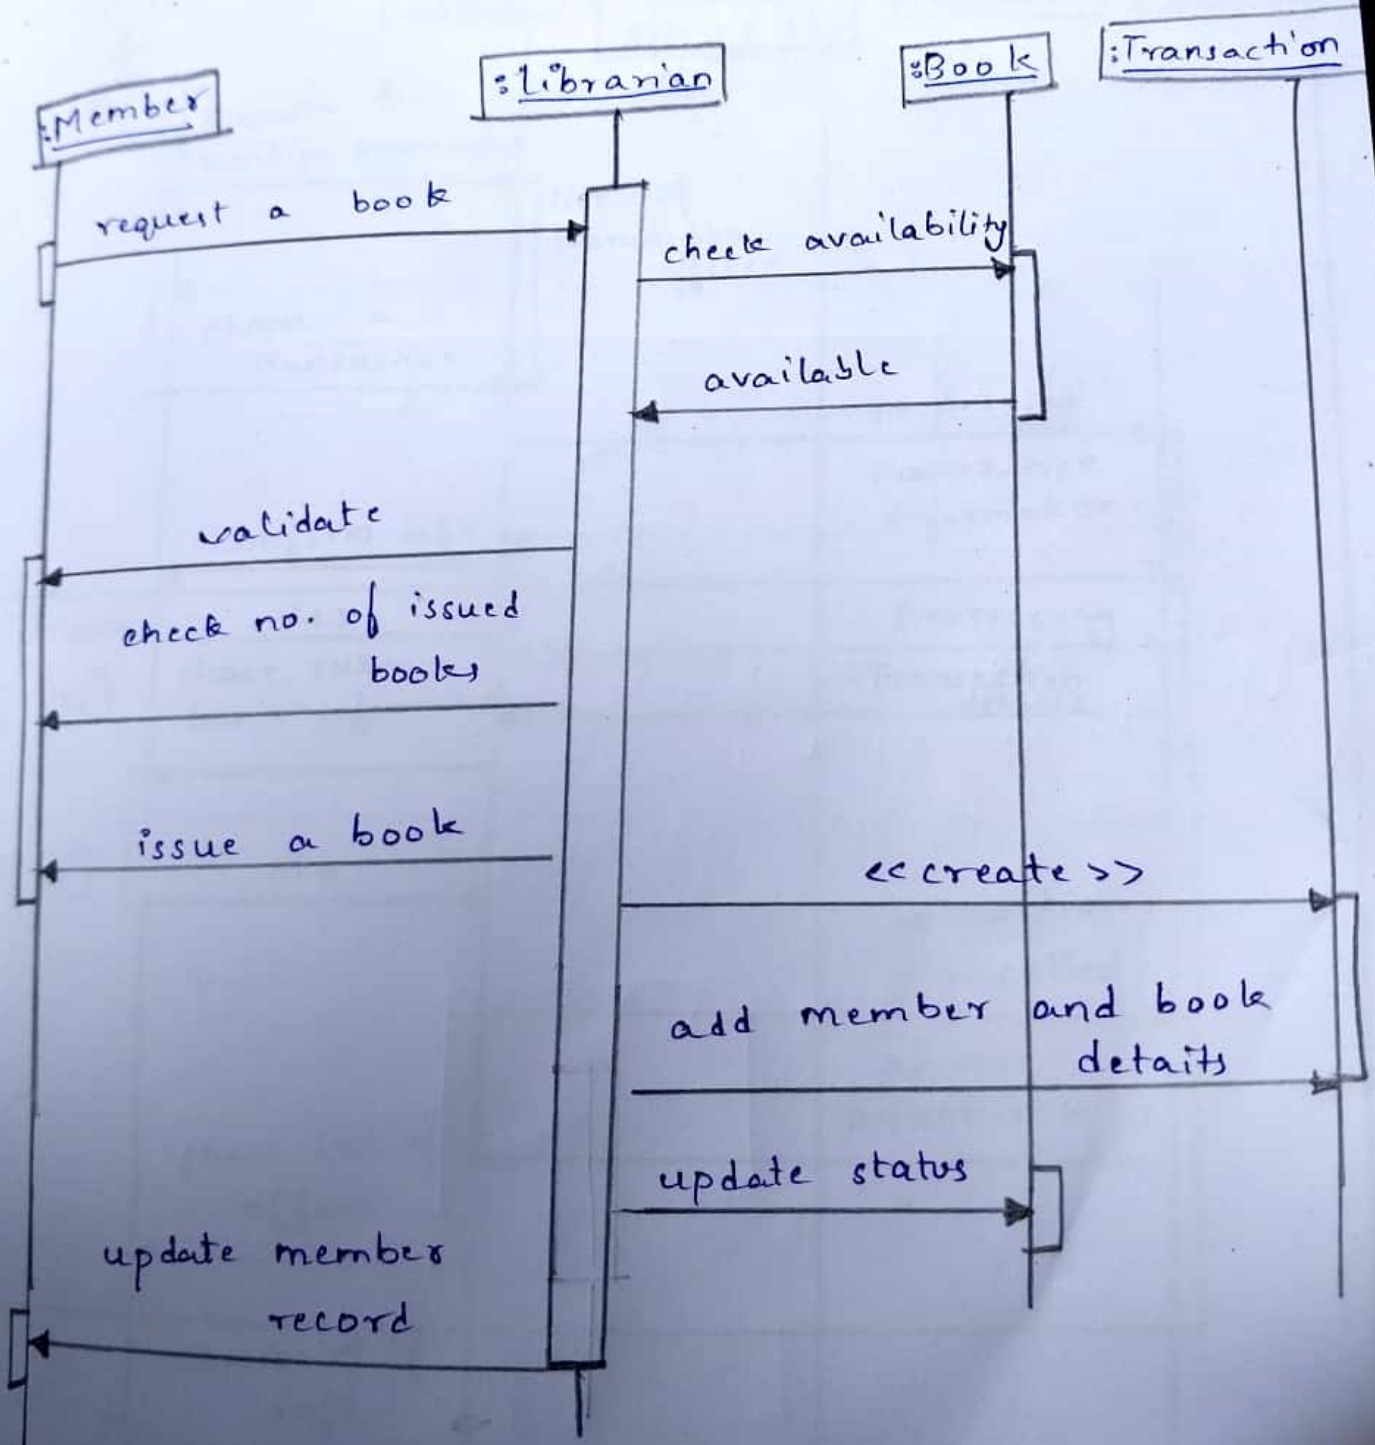 :Member
:Librarian
:Book
:Transaction
request a book
check availability
available
validate
check no. of issued
books
issue a book
<<create>>
add member and book
details
update status
update member
record